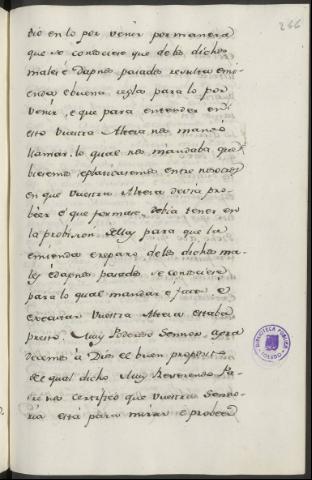 266
dio en lo por venir por manera
que se conociese que de los dichos
males é dapnos pasados resulta emi-
enda é buena regla para lo por
venir, e que para entender en
esto vuestra Alteza nos mandó
llamar, lo qual nos mandaba que
biesemos é platicasemos entre nosotros
en que vuestra Alteza devia pro-
beer é que forma se debia tener en
la probision dello para que la
emienda é reparo de los dichos ma-
les é dapnos pasados se conociese
para lo qual mandar é facer é
executar Vuestra Alteza estaba
presto. Muy Poderoso Sennor, agra
decemos á Dios el buen proposito
el qual dicho Muy Reverendo Pa-
dre nos certificó que Vuestra Senno-
ria está para mirar é probeer
BIBLIOTECA PÚBLICA
TOLEDO